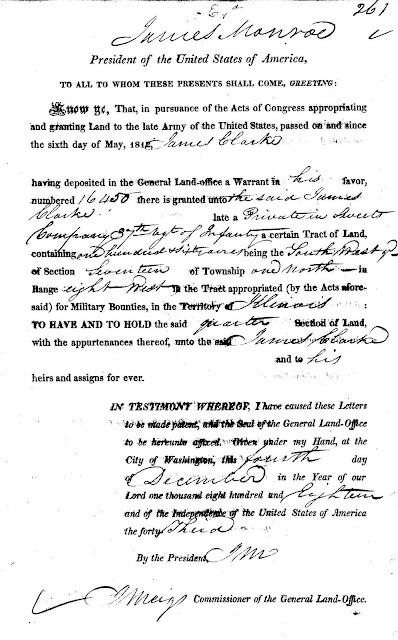 261
James Monroe
President of the United States of America,
TO ALL TO WHOM THESE PRESENTS SHALL COME, GREETING:
Know ye, That, in pursuance of the Acts of Congress appropriating
and granting Land to the late Army of the United States, passed on and since
the sixth day of May, 1812, James Clarke
having deposited in the General Land-office a Warrant in his favor,
numbered 16450 there is granted unto the said James
Clarke late a Private in
Company 37th regt of Infantry a certain Tract of Land,
containing one hundred sixty acres being the South West qr
of Section Seventeen of Township one North in
Range eight West in the Tract appropriated (by the Acts afore-
said) for Military Bounties, in the Territory of Illinois
TO HAVE AND TO HOLD the said quarter Section of Land,
with the appurtenances thereof, unto the said James Clarke
and to his
heirs and assigns for ever.
IN TESTIMONY WHEREOF, I have caused these Letters
to be made patent, and the Seal of the General Land-Office
to be hereunto affixed. Given under my Hand, at the
City of Washington, this fourth day
of December in the Year of our
Lord one thousand eight hundred and Eighteen
and of the Independence of the United States of America
the forty Third
By the President, JM
J Meigs Commissioner of the General Land-Office.